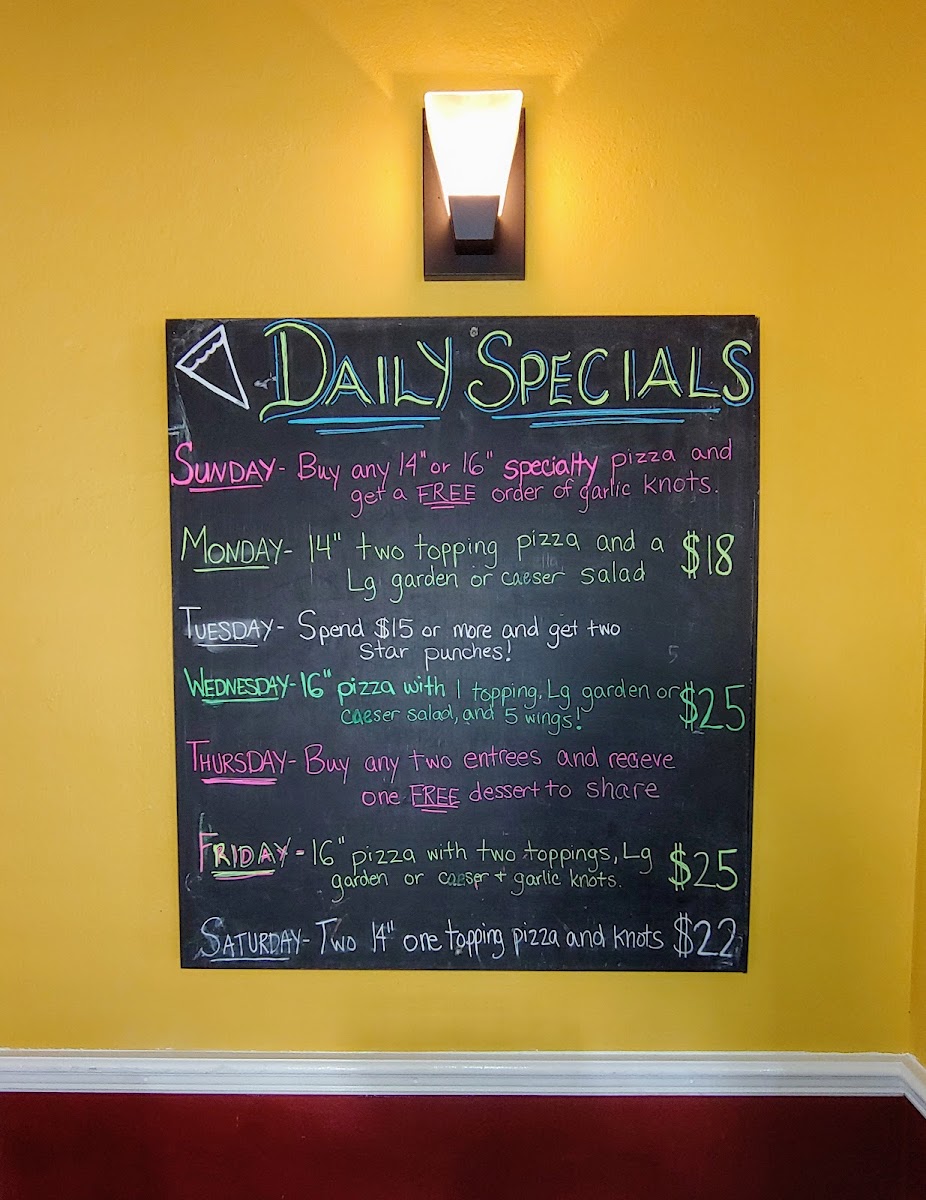 DAILY SPECIALS
SUNDAY- Buy any 14" or 16" specialty pizza and
get a FREE order of garlic knots.
MONDAY- 14" two topping pizza and a $18
Lg garden or caeser salad
TUESDAY- Spend $15 or more and get two
Star punches!
WEDNESDAY- 16" pizza with 1 topping, Lg garden or $25
caeser salad, and 5 wings!
THURSDAY- Buy any two entrees and recieve
one FREE dessert to share
FRIDAY- 16" pizza with two toppings, Lg $25
garden or caeser + garlic knots.
SATURDAY- Two 14" one topping pizza and knots $22